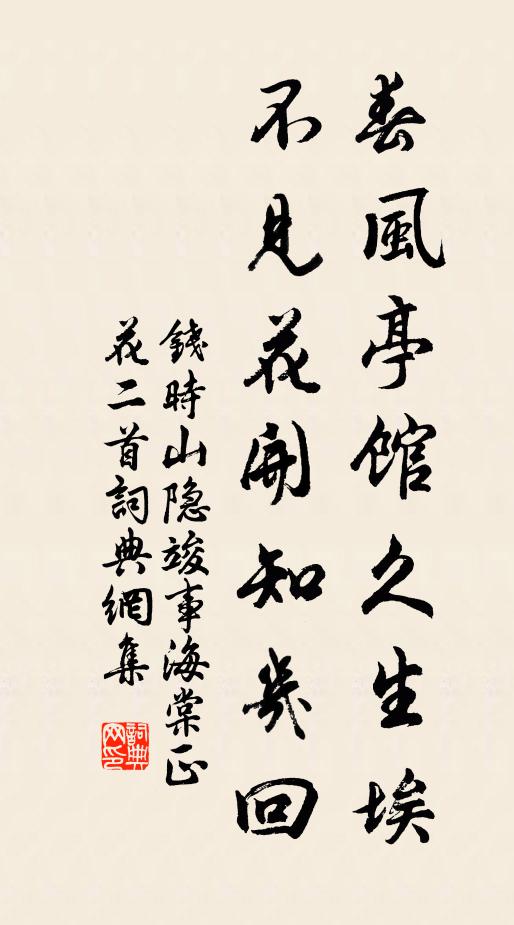 春風亭館久生埃
不見花開知幾回
錢時山隐竣事海棠正
花二首詞典網集
詞典网印